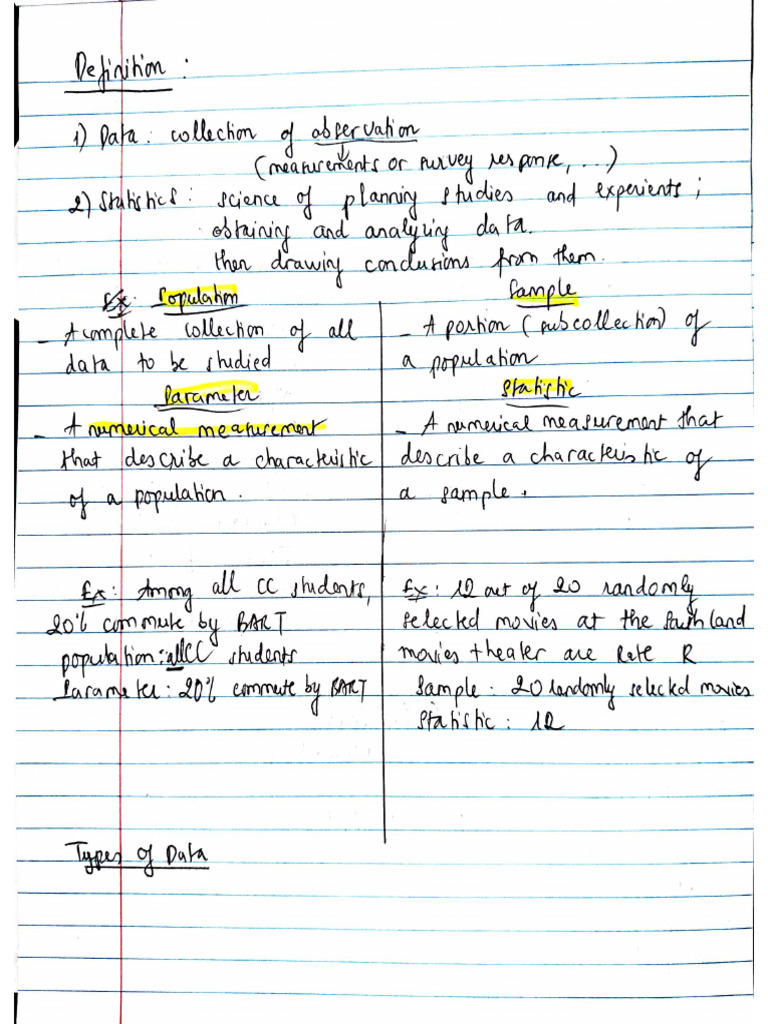 Definition :
1) Data : collection of observation
(measurements or survey response, ...)
2) Statistics : science of planning studies and experients ;
obtaining and analyzing data.
then drawing conclusions from them.
Ex: Population
- A complete collection of all
data to be studied
Parameter
- A numerical measurement
that describe a characteristic
of a population .
Ex : Among all CC students,
20% commute by BART
population : all CC students
Parameter : 20% commute by BART
Sample
- A portion (subcollection) of
a population
Statistic
- A numerical measurement that
describe a characteristic of
a sample .
Ex : 12 out of 20 randomly
selected movies at the Southland
movies theater are Rate R
Sample : 20 randomly selected movies
Statistic : 12
Types of Data